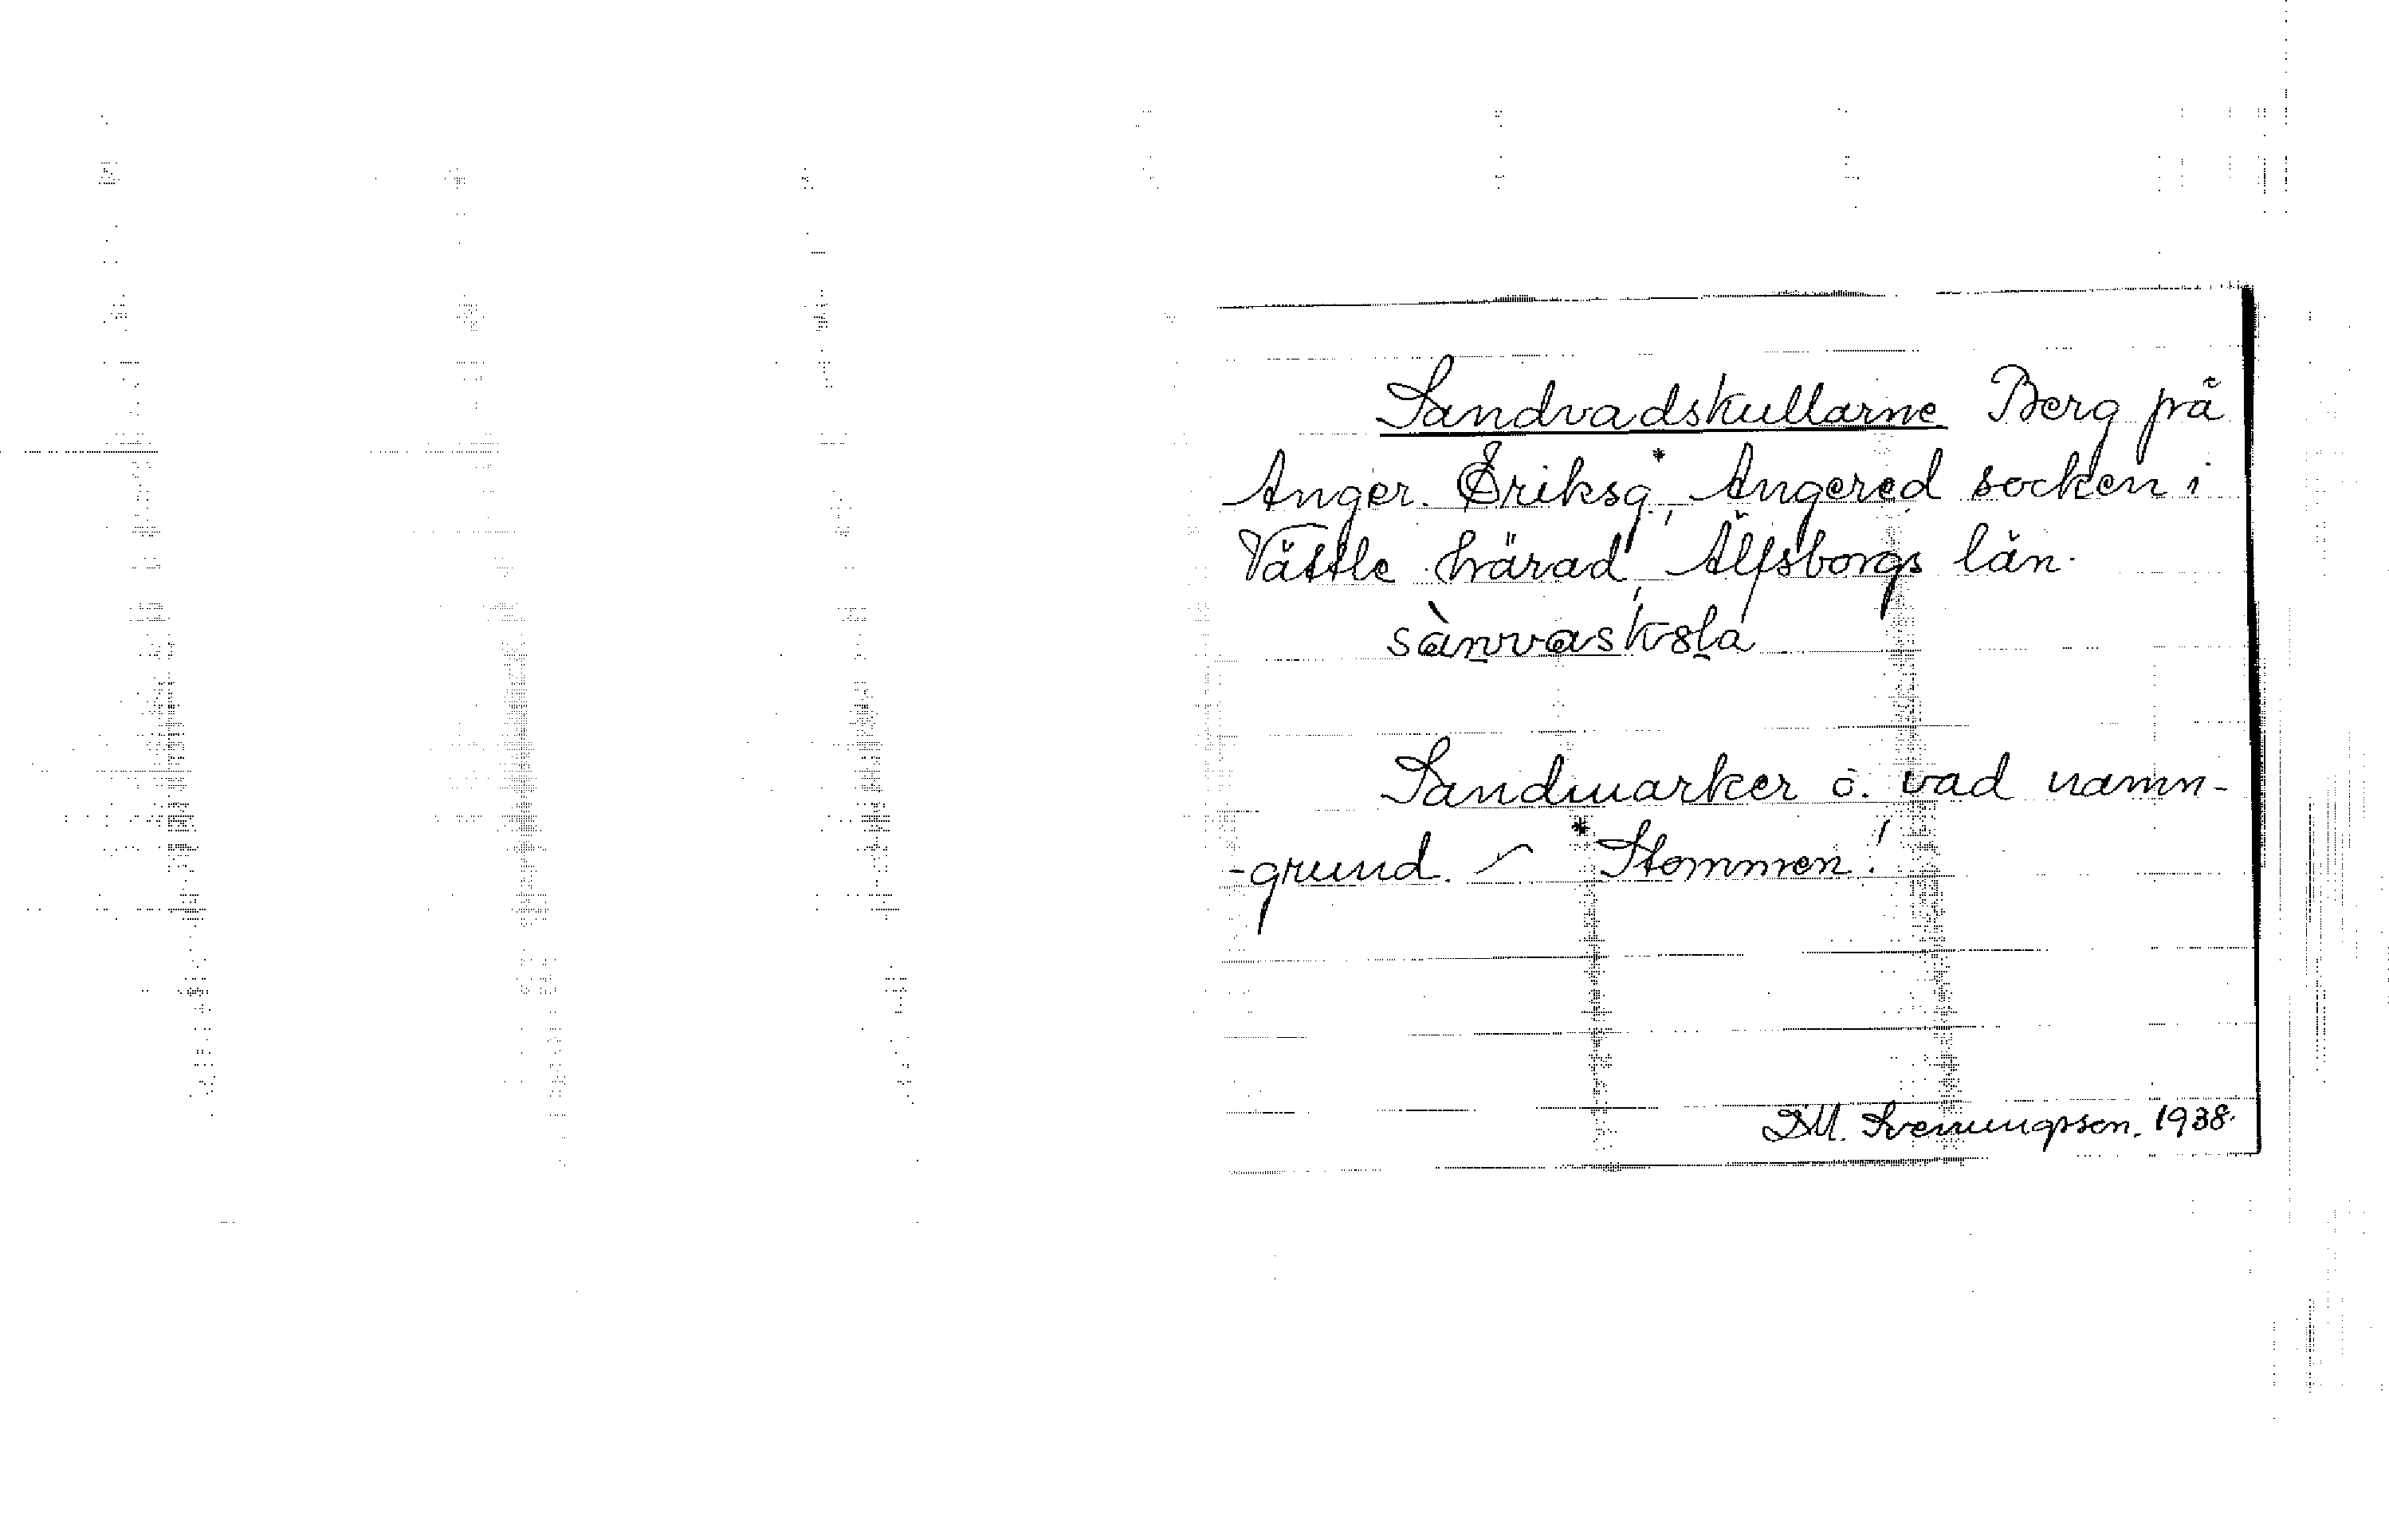 Sandvadskullarne Berg på
Anger. Eriksg.*, Angered socken i
Vättle härad, Älfsborgs län.
sànvasksla
Sandmarker o. vad namn-
-grund. / * Stommen!
D.M. Svenungsson. 1938.